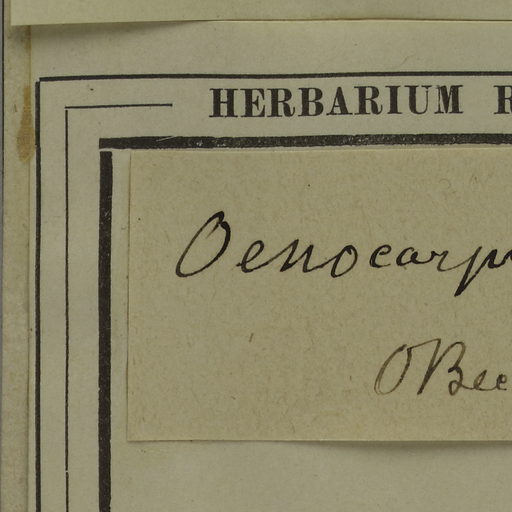 HERBARIUM R
Oenocarp
OBec